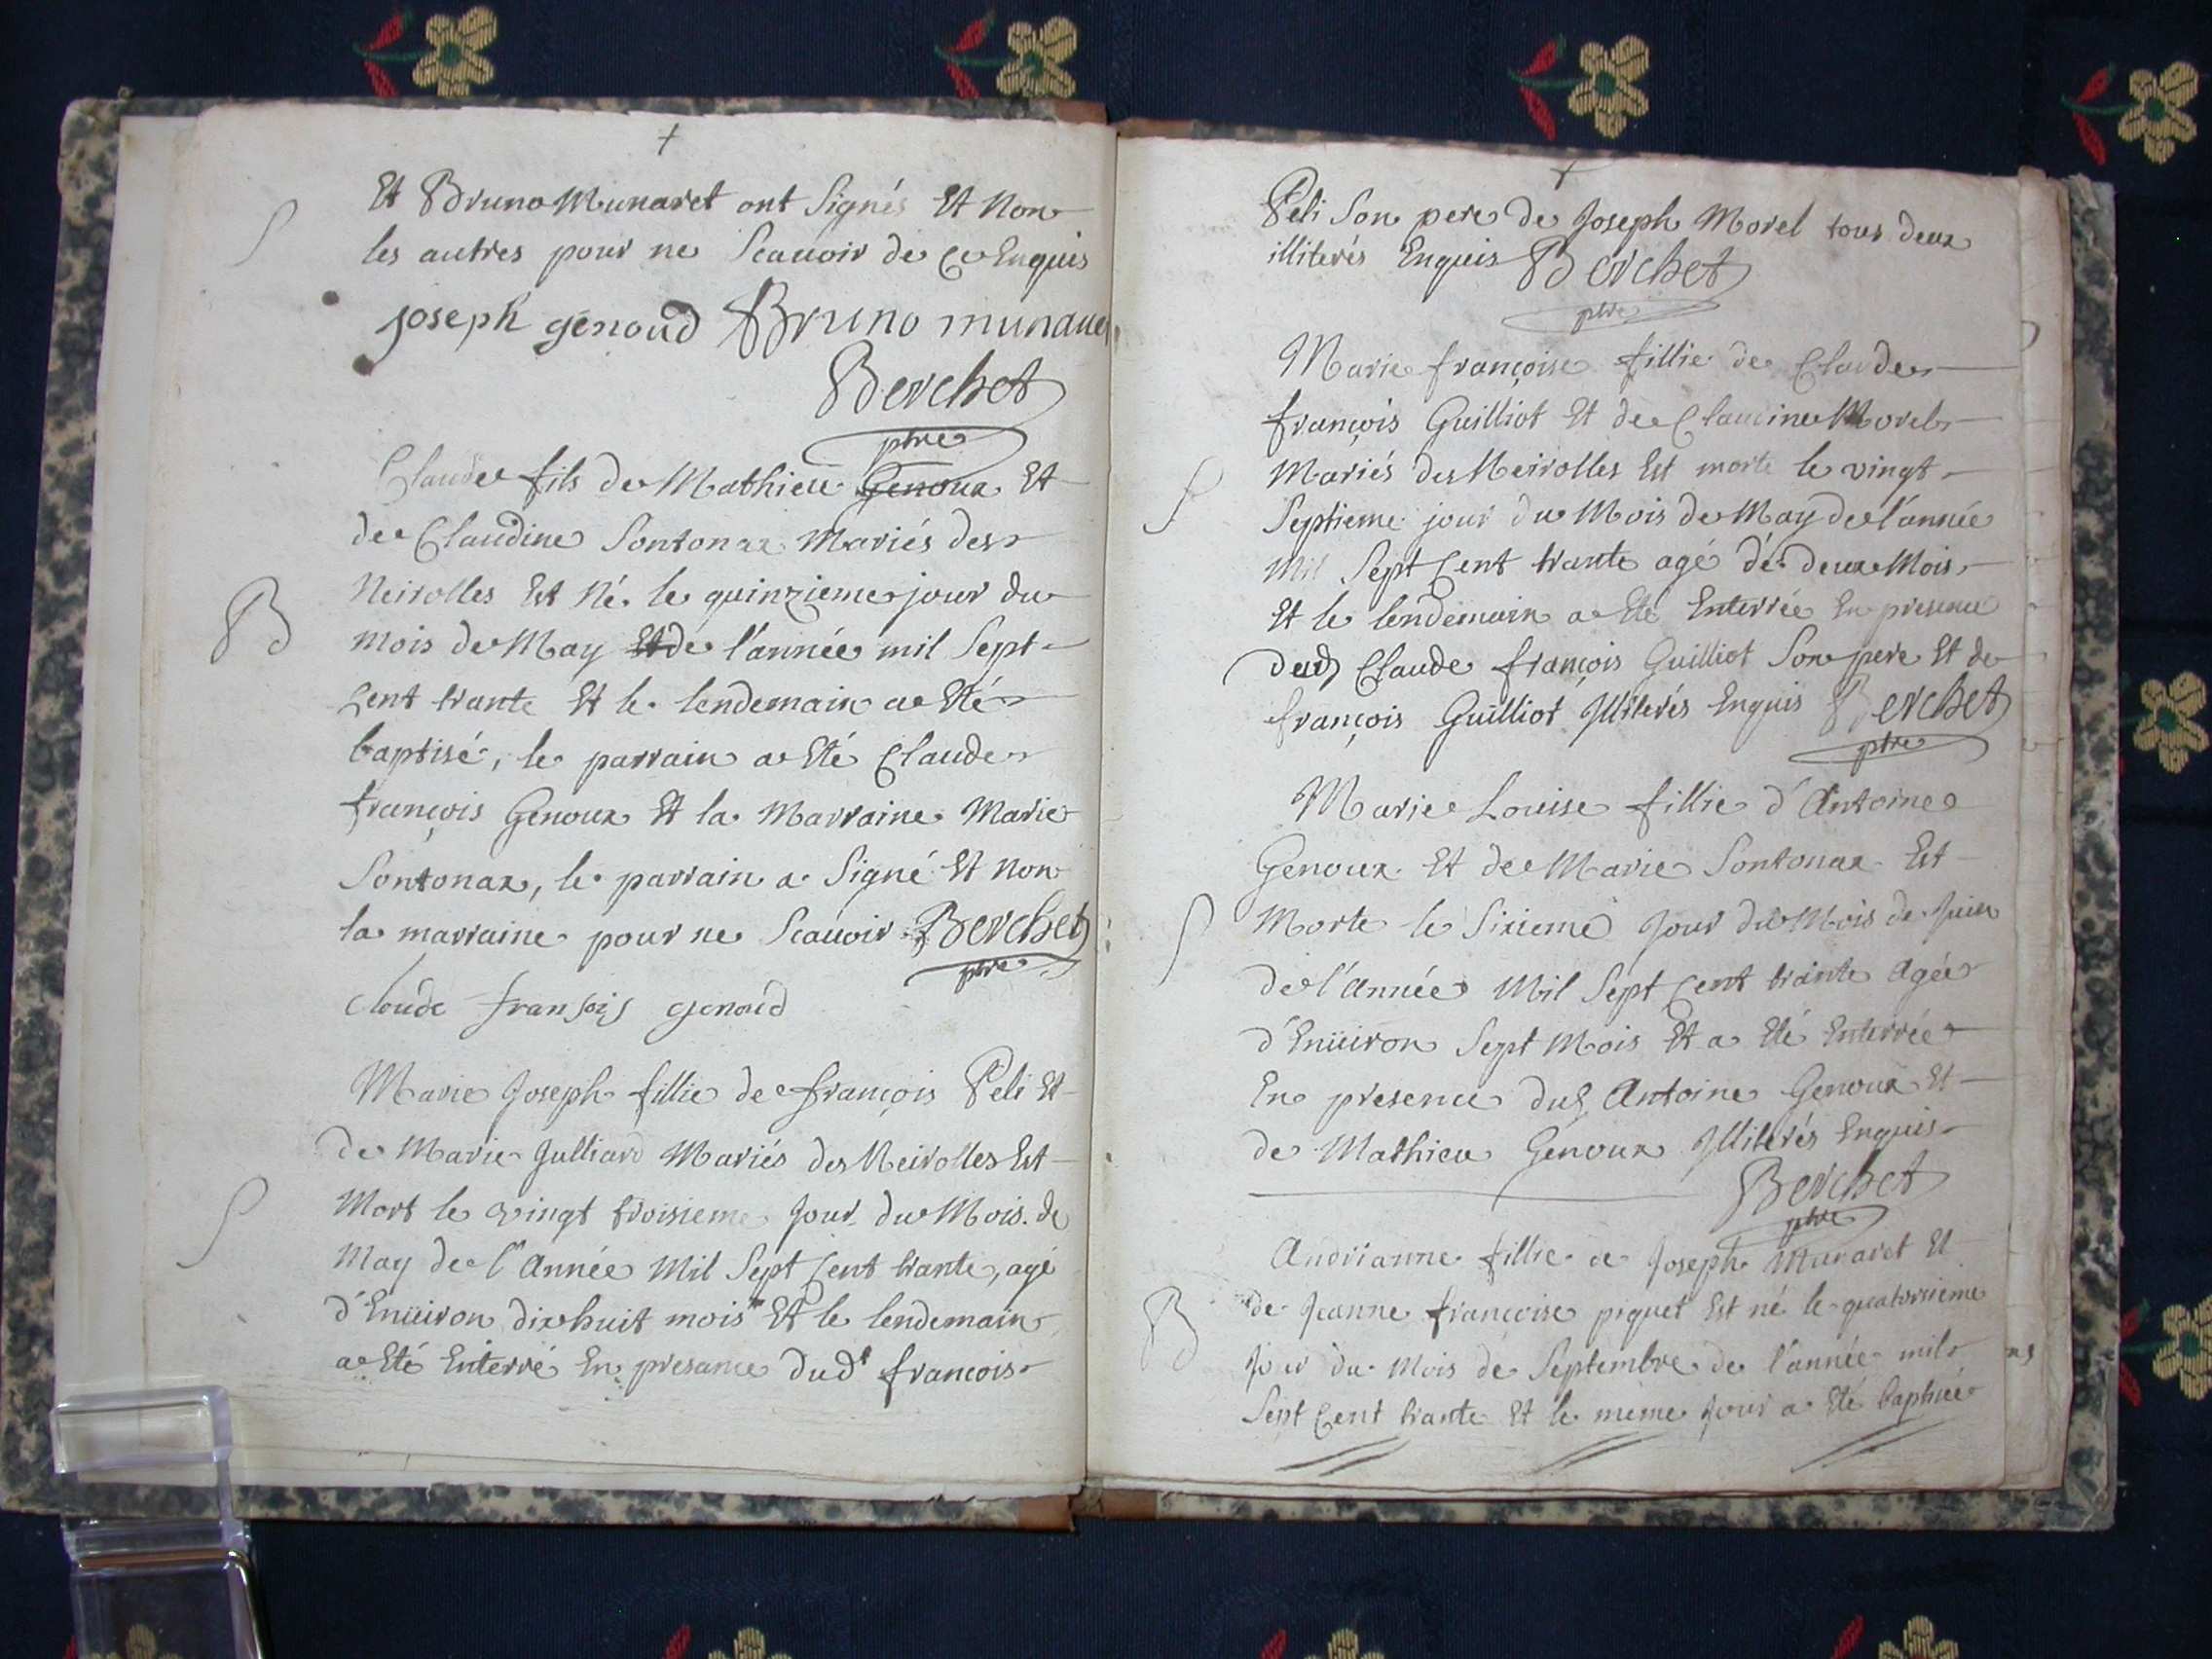 +
Et Bruno Munaret ont Signés Et Non
S
les autres pour ne Scauoir de Ce Enquis
joseph genoud Bruno munaret
Berchet
ptre
Claude fils de Mathieu Genoux Et
de Claudine Sontonax Mariés des
Neirolles Est Né le quinzieme jour du
B
mois de May Et de l'année mil Sept
Cent trante Et le lendemain a Eté
baptisé, le parrain a Eté Claude
françois Genoux Et la Marraine Marie
Sontonax, le parrain a Signé Et Non
la marraine pour ne Scauoir Berchet
ptre
claude fransois genoud
Marie Joseph fillie de françois Peli Et
de Marie Julliard Mariés des Neirolles Est
S
Mort le vingt troisieme Jour du Mois de
May de l'Année Mil Sept Cent trante, agé
d'Enüiron dixhuit mois Et le lendemain
a Eté Enterré En presance dud françois
+
Peli Son pere de Joseph Morel tous deux
illiterés Enquis Berchet
ptre
Marie françoise fillie de Claude
françois Guilliot Et de Claudine Morel
Mariés des Neirolles Est morte le vingt
S
Septieme jour du Mois de May de l'année
Mil Sept Cent trante agé de deux Mois
Et le lendemain a Eté Enterrée En presence
dud Claude françois Guilliot Son pere Et de
françois Guilliot Illiterés Enquis Berchet
ptre
Marie Louise fillie d'Antoine
Genoux Et de Marie Sontonax Est
S
Morte le Sixieme Jour du Mois de Juin
de l'Année Mil Sept Cent trante Agée
d'Enüiron Sept Mois Et a Eté Enterrée
En presence dud Antoine Genoux Et
de Mathieu Genoux Illiterés Enquis
Berchet
ptre
Andrianne fillie de Joseph Munaret Et
B
de Jeanne françoise piquet Est né le quatorzieme
Jour du Mois de Septembre de l'année mil
Sept Cent trante Et le meme Jour a Eté baptisée